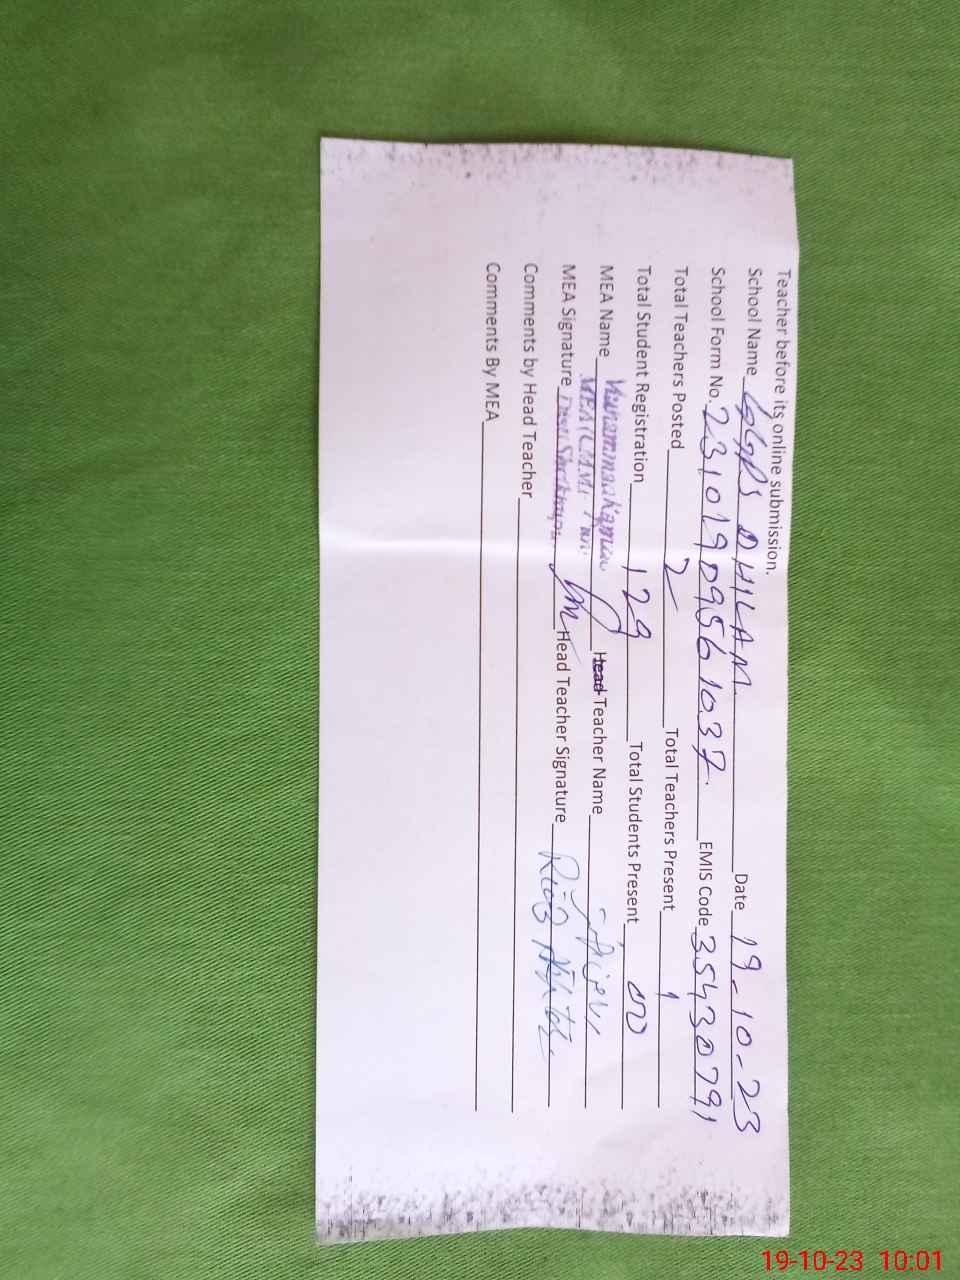 Teacher before its online submission.
School Name GGPS DHILAM. Date 19-10-23
School Form No. 23101909561037. EMIS Code 35430791
Total Teachers Posted 2 Total Teachers Present 1
Total Student Registration 129 Total Students Present 00
MEA Name Head Teacher Name
MEA Signature Head Teacher Signature
Comments by Head Teacher
Comments By MEA
19-10-23 10:01